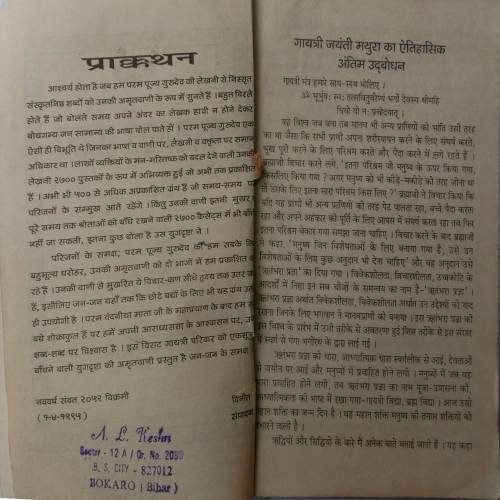 प्राक्कथन
आश्चर्य होता है जब हम परम पूज्य गुरुदेव की लेखनी से निस्सृत
संस्कृतनिष्ठ शब्दों को उनकी अमृतवाणी के रूप में सुनते हैं । बहुत विरले
होते हैं जो बोलते समय अपने अंदर का लेखक हावी न होने देकर
बोधगम्य जन सामान्य की भाषा बोल पाते हों । परम पूज्य गुरुदेव एक
ऐसी ही विभूति थे जिनका भाषा व वाणी पर, लेखनी व वक्तृता पर समान
अधिकार था । लाखों व्यक्तियों के मन-मस्तिष्क को बदल देने वाली उनकी
लेखनी २७०० पुस्तकों के रूप में अभिव्यक्त हुई जो अभी तक प्रकाशित
हैं । अभी भी ५०० से अधिक अप्रकाशित ग्रंथ हैं जो समय-समय पर
परिजनों के सम्मुख आते रहेंगे । किंतु उनकी वाणी इतनी मुखर
पूरे समय तक श्रोताओं को बाँधे रखने वाली २७०० कैसेट्स में भी बाँधी
नहीं जा सकती, इतना कुछ बोला है उस युगदृष्टा ने ।
परिजनों के समक्ष; परम पूज्य गुरुदेव की हम सबके लिए
बहुमूल्य धरोहर, उनकी अमृतवाणी को दो भागों में हम प्रकाशित कर
रहे हैं । उनकी वाणी से मुखरित ये विचार-कण सीधे हृदय तक उतर जाते
हैं, इसीलिए जन-जन यहाँ तक कि छोटे बच्चों के लिए भी यह ग्रंथ उतना
ही उपयोगी है । परम वंदनीया माता जी के महाप्रयाण के बाद हम सब
बड़े शोकाकुल हैं पर हमें अपनी आराध्यसत्ता के आश्वासन पर, उनके
शब्द-शब्द पर विश्वास है । इस विराट गायत्री परिवार को एकसूत्र में
बाँधने वाली युगदृष्टा की अमृतवाणी प्रस्तुत है जन-जन के समक्ष ।
नववर्ष संवत २०५२ विक्रमी विनीत
(१-४-१९९५) संपादक
Sector - 12 A / Qr. No.
B. S. CITY - 827012
BOKARO (Bihar)
गायत्री जयंती मथुरा का ऐतिहासिक
अंतिम उद्बोधन
गायत्री मंत्र हमारे साथ-साथ बोलिए ।
ॐ भूर्भुवः स्वः तत्सवितुर्वरेण्यं भर्गो देवस्य धीमहि
धियो यो नः प्रचोदयात् ।
यह विश्व जब बना तब मानव भी अन्य प्राणियों की भाँति उसी तरह
का था जैसा कि सभी प्राणी अपना शरीरयापन करने के लिए संघर्ष करते,
भूख पूरी करने के लिए परिश्रम करते और पैदा करने में लगे रहते हैं ।
ब्रह्माजी विचार करने लगे, 'इतना परिश्रम जो मनुष्य के ऊपर किया गया,
किसलिए किया गया ? अगर मनुष्य को भी कीड़े-मकोड़े की तरह जीना था
तो उसके लिए इतना सारा परिश्रम किस लिए ?' ब्रह्माजी ने विचार किया कि
यदि यह प्राणी भी अन्य प्राणियों की तरह पेट पालता रहा, बच्चे पैदा करता
रहा और अपने अहंकार की पूर्ति के लिए आपस में संघर्ष करता रहा तब फिर
इतना परिश्रम बेकार गया समझा जाना चाहिए । विचार करने के बाद ब्रह्माजी
ने कहा, 'मनुष्य जिन विशेषताओं के लिए बनाया गया है, उसे उन
विशेषताओं के लिए कुछ अनुदान भी देना चाहिए' और वह अनुदान उसे
'ऋतंभरा प्रज्ञा' का दिया गया । विवेकशीलता, विचारशीलता, उच्चकोटि के
आदर्शों में निष्ठा इन सब चीजों के समन्वय का नाम है-'ऋतंभरा प्रज्ञा' ।
ऋतंभरा प्रज्ञा अर्थात विवेकशीलता, विवेकशीलता अर्थात उन उद्देश्यों को याद
रखना जिनके लिए भगवान ने मानवप्राणी को बनाया । इस ऋतंभरा प्रज्ञा की
इस विश्व के प्रारंभ में उसी तरीके से अवतरणा हुई जिस तरीके से इस संसार
में स्वर्ग से गंगा भगीरथ के द्वारा लाई गई ।
ऋतंभरा प्रज्ञा की धारा, आध्यात्मिक धारा स्वर्गलोक से आई, देवताओं
से जमीन पर आई और मनुष्यों में प्रवाहित होने लगी । मनुष्यों में जब यह
धारा प्रवाहित होने लगी, तब ऋतंभरा प्रज्ञा का नाम पूजा-उपासना की,
आध्यात्मिकता की भाषा में रखा गया-गायत्री विद्या, ब्रह्म विद्या । आज उसी
महान शक्ति का जन्म दिन है । यह महान शक्ति मनुष्य को तमाम शक्तियों को
उभारने वाली है ।
ऋद्धियों और सिद्धियों के बारे में अनेक बातें बताई जाती हैं । यह कहा